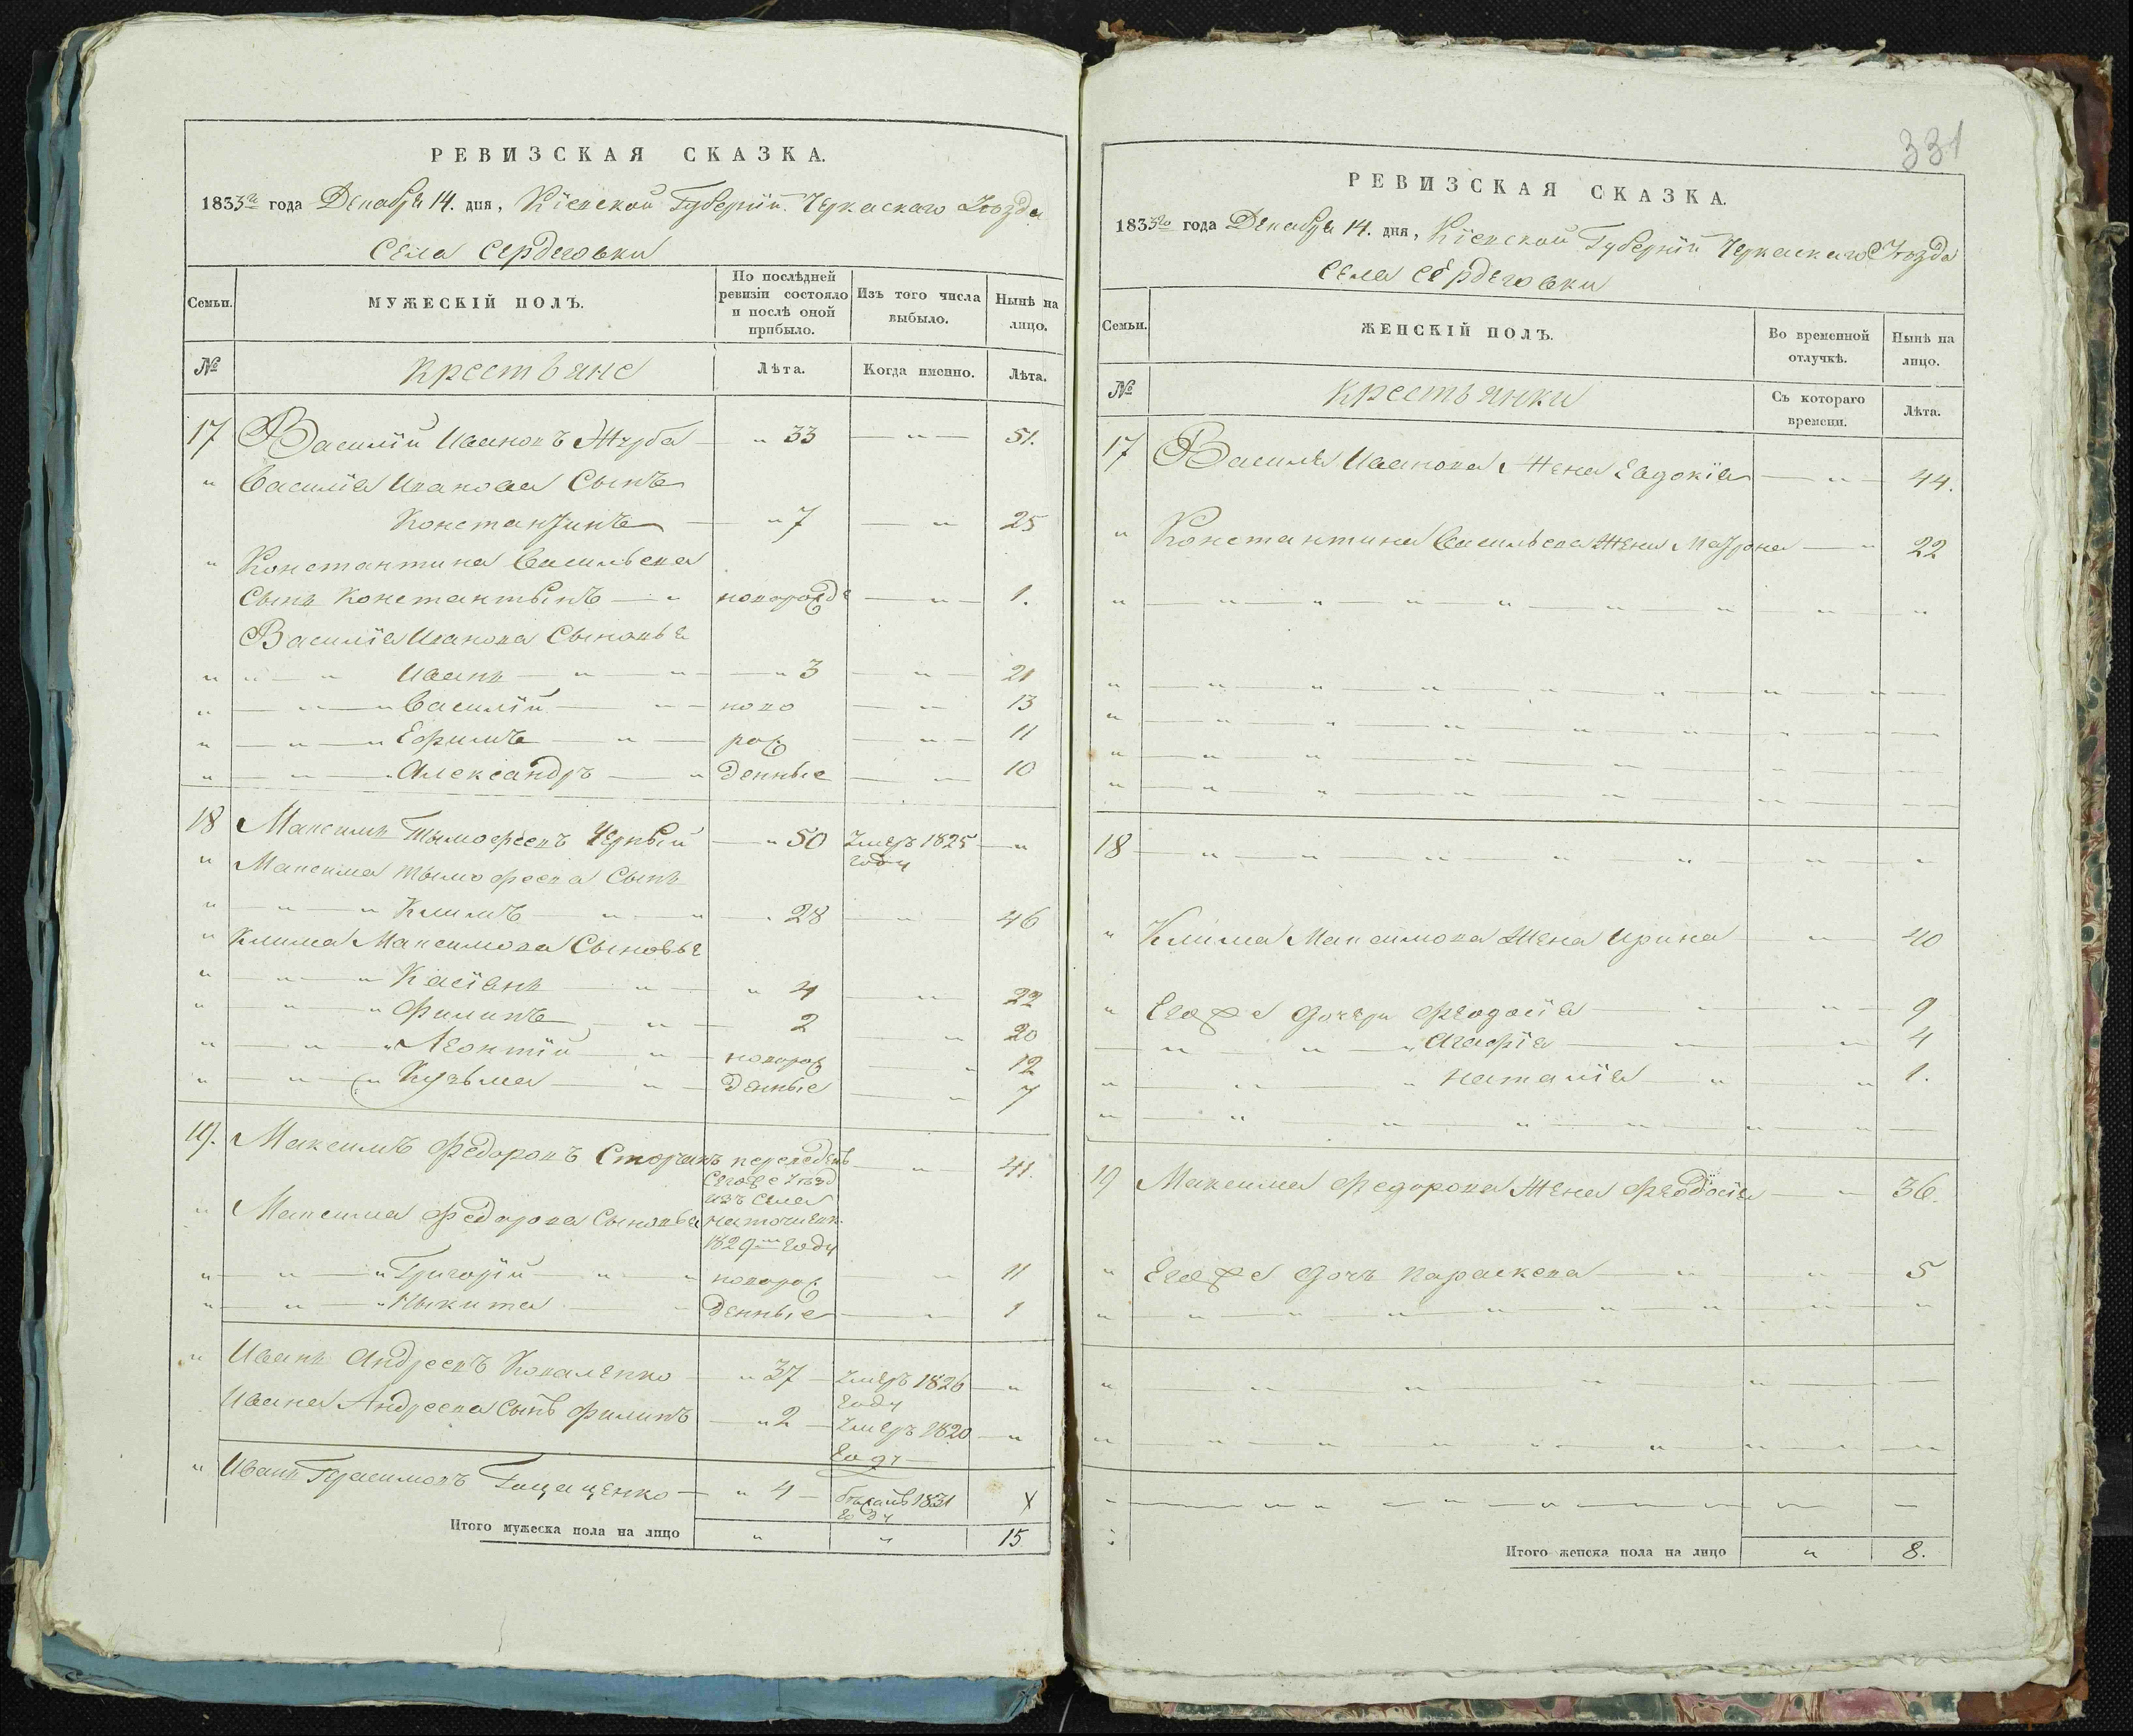 РЕВИЗСКАЯ СКАЗКА.
1833го года Декабря 14. дня, Кіевской Губерніи Черкаскаго Уѣзда
Села Сердеговки
Семьи.
МУЖЕСКІЙ ПОЛЪ.
По послѣдней ревизіи состояло и послѣ оной прибыло.
Изъ того числа выбыло.
Нынѣ на лицо.
№
Крестьяне
Лѣта.
Когда именно.
Лѣта.
17 Василій Ивановъ Журба — „ 33 — „ — 51.
„ Василія Иванова Сынъ
Константинъ — „ 7 — „ 25
„ Константина Васильева
Сынъ Константынъ — „ новорожде — „ — 1.
Василія Иванова Сыновья
„ „ — „ Иванъ — „ — „ — „ 3 — „ — 21
„ — „ — „ Василій — „ — ново — „ 13
„ — „ — „ Ефимъ — „ — рож — „ — 11
„ — „ — „ Александръ — „ денные — „ 10
18 Максимъ Тымофеевъ Черный — „ 50 Умеръ 1825 — „
году
„ Максима Тымофеева Сынъ
„ — „ — „ Климъ — „ — „ — „ 28 — „ 46
„ Клима Максимова Сыновье
„ — „ — „ Касіянъ — „ — „ 4 — „ 22
„ — „ — „ Филипъ — „ — 2 — „ 20
„ — „ — „ Леонтій — „ — новорож — „ 12
„ — „ — „ Кузьма — „ — денные — „ 7
19. Максимъ Федоровъ переведенъ — „ — 41.
Сегоже Уѣзд
изъ Села
„ Максима Федорова Сыновья
1829м году
„ — „ — „ Григорій — „ — „ новорож — „ 11
„ — „ — „ Ныкита — „ денные — „ 1
„ Иванъ Андреевъ Коваленко — „ 37 — Умеръ 1826 — „
году
Ивана Андреева Сынъ Филипъ — „ 2 — Умеръ 1820 — „
году —
„ Иванъ Герасимовъ — „ 4 — 1831 X
году
Итого мужеска пола на лицо „ „ 15
331
РЕВИЗСКАЯ СКАЗКА.
1833го года Декабря 14. дня, Кіевской Губерніи Черкаскаго Уѣзда
Села Сердеговки
Семьи.
ЖЕНСКІЙ ПОЛЪ.
Во временной отлучкѣ.
Нынѣ на лицо.
№
Крестьянки
Съ котораго времени.
Лѣта.
17 Василя Иванова Жена Евдокія — „ — 44.
„ Константина Васильева Жена Матрона — „ 22
18 — „ — „ — „ — „ — „ — „ — „
„ Клима Максимова Жена Ирина — „ — 40
„ Егоже дочери Феодосія — „ — „ — 9
„ — „ — „ Агафія — „ — „ 4
„ — „ — „ Наталія — „ — „ 1.
19 Максима Федорова Жена Феодосія — „ — 36.
„ Егоже дочь Параскева — „ — „ — 5
Итого женска пола на лицо „ 8.